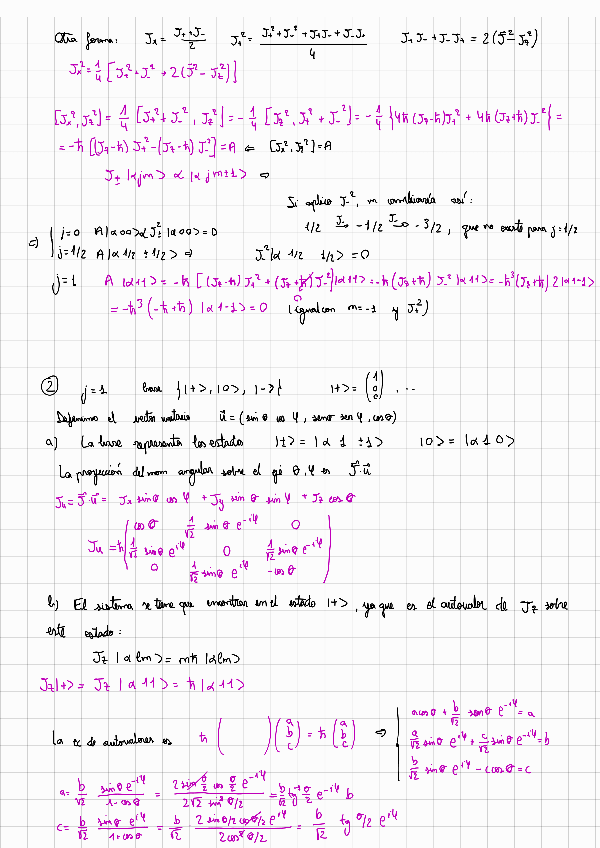 Otra forma: Jx = (J+ + J-)/2   Jx² = (J+² + J-² + J+J- + J-J+)/4   J+J- + J-J+ = 2(J⃗² - Jz²)
Jx² = 1/4 [J+² + J-² + 2(J⃗² - Jz²)]
[Jx², Jz²] = 1/4 [J+² + J-², Jz²] = -1/4 [Jz², J+² + J-²] = -1/4 {4ħ(Jz-ħ)J+² + 4ħ(Jz+ħ)J-²} =
= -ħ[(Jz-ħ)J+² - (Jz-ħ)J-²] = A ⇐ [Jx², Jz²] = A
J± |α j m> ∝ |α j m±1> ⇒
Si aplico J-², m cambiaría así:
1/2 →(J-) -1/2 →(J-) -3/2, que no existe para j=1/2
c) j=0 A|α00> ∝ J±²|α00> = 0
j=1/2 A|α 1/2 ±1/2> ⇒ J-²|α 1/2 1/2> = 0
j=1 A |α11> = -ħ[(Jz-ħ)J+² + (Jz+ħ)J-²]|α11> = -ħ(Jz+ħ)J-²|α11> = -ħ³(Jz+ħ)2|α1-1>
= -ħ³(-ħ+ħ)|α1-1> = 0 (igual con m=-1 y J+²)
② j=1 base {|+>, |0>, |->} |+> = (1 0 0) ...
Definimo el vector unitario u⃗ = (sin θ cos φ, senθ sen φ, cosθ)
a) La base representa los estados |±> = |α 1 ±1> |0> = |α 1 0>
La proyección del mom angular sobre el eje θ, φ es J⃗·u⃗
Ju = J⃗·u⃗ = Jx sin θ cos φ + Jy sin θ sin φ + Jz cos θ
Ju = ħ ( cos θ   1/√2 sin θ e^-iφ   0
1/√2 sinθ e^iφ   0   1/√2 sinθ e^-iφ
0   1/√2 sinθ e^iφ   -cosθ )
b) El sistema se tiene que encontrar en el estado |+>, ya que es el autovalor de Jz sobre
este estado:
Jz |α l m> = mħ |α l m>
Jz|+> = Jz |α 11> = ħ |α 11>
La ec de autovalores es ħ (   ) (a b c) = ħ (a b c) ⇒
a cosθ + b/√2 senθ e^-iφ = a
a/√2 sinθ e^iφ + c/√2 sinθ e^-iφ = b
b/√2 sinθ e^iφ - c cosθ = c
a = b/√2 sinθ e^-iφ/(1-cosθ) = 2 sin θ/2 cos θ/2 e^-iφ/(2√2 sin² θ/2) = b/√2 tg^-1 θ/2 e^-iφ b
c = b/√2 sinθ e^iφ/(1+cosθ) = b/√2 2 sin θ/2 cos θ/2 e^iφ/(2cos² θ/2) = b/√2 tg θ/2 e^iφ